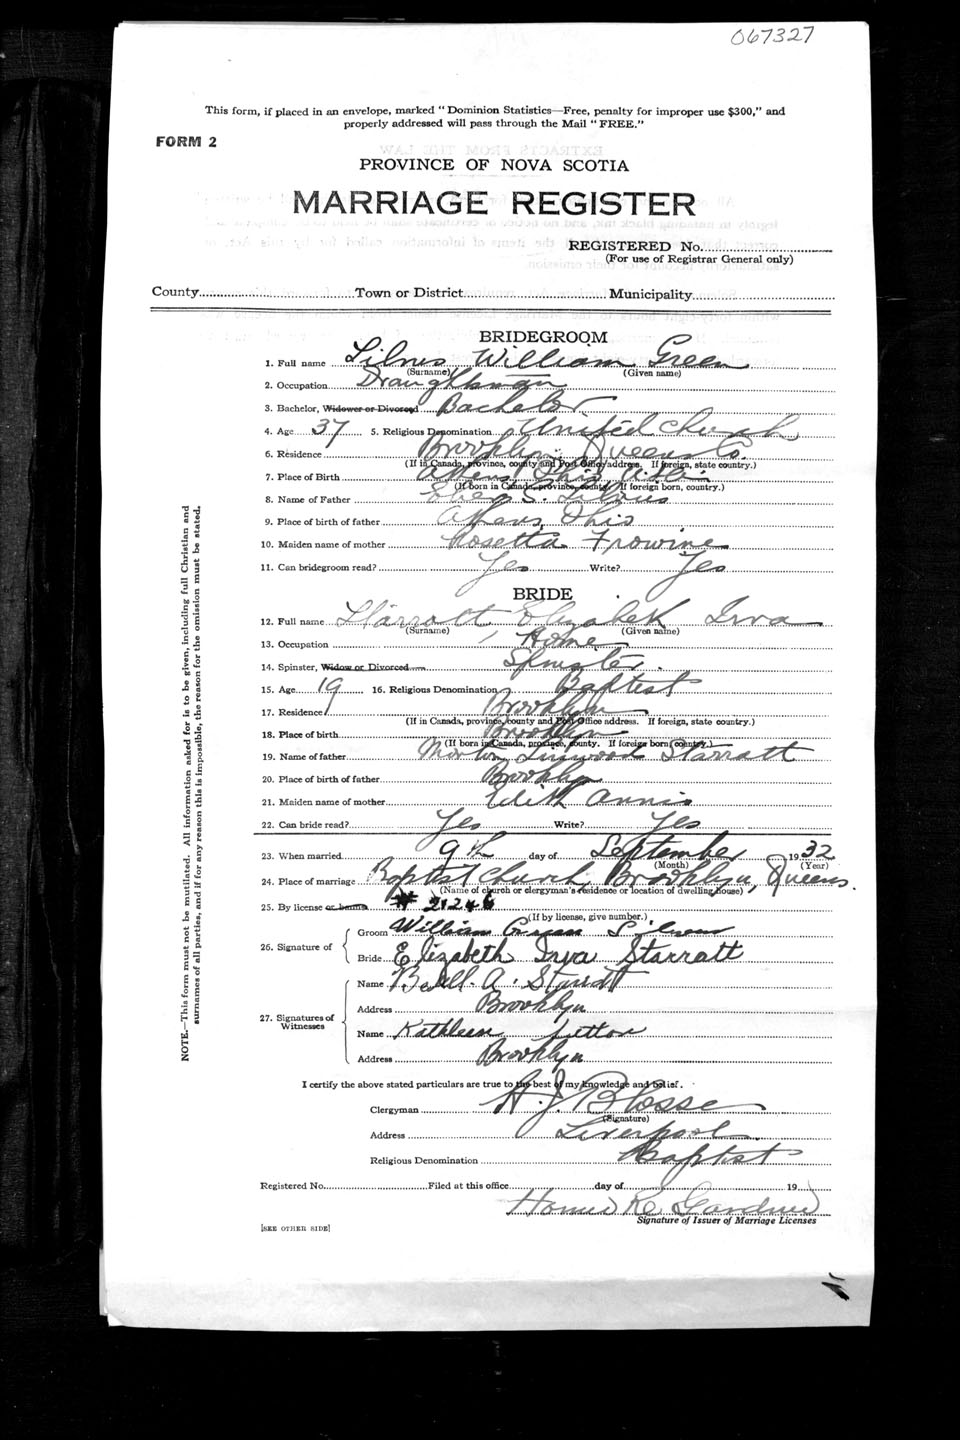 067327
This form, if placed in an envelope, marked "Dominion Statistics—Free, penalty for improper use $300," and
properly addressed will pass through the Mail "FREE."
FORM 2
PROVINCE OF NOVA SCOTIA
MARRIAGE REGISTER
REGISTERED No.
(For use of Registrar General only)
County Town or District Municipality
BRIDEGROOM
1. Full name William Green
(Surname) (Given name)
2. Occupation Draughtsman
3. Bachelor, Widower or Divorced Bachelor
4. Age 37 5. Religious Denomination United Church
6. Residence Brooklyn Queens Co.
(If in Canada, province, county and Post Office address. If foreign, state country.)
7. Place of Birth Athens Ohio
(If born in Canada, province, county. If foreign born, country.)
8. Name of Father
9. Place of birth of father Athens, Ohio
10. Maiden name of mother Rosetta Frowine
11. Can bridegroom read? Yes Write? Yes
BRIDE
12. Full name Starratt Elizabeth Irva
(Surname) (Given name)
13. Occupation Home
14. Spinster, Widow or Divorced Spinster
15. Age 19 16. Religious Denomination Baptist
17. Residence Brooklyn
(If in Canada, province, county and Post Office address. If foreign, state country.)
18. Place of birth Brooklyn
(If born in Canada, province, county. If foreign born, country.)
19. Name of father Linwood Starratt
20. Place of birth of father Brooklyn
21. Maiden name of mother Edith Annis
22. Can bride read? Yes Write? Yes
23. When married 9th day of September 1932
(Month) (Year)
24. Place of marriage Baptist Church, Brooklyn, Queens.
(Name of church or clergyman's residence or location of dwelling house)
25. By license or banns # 21246
(If by license, give number.)
26. Signature of
Groom William Green
Bride Elizabeth Irva Starratt
27. Signatures of
Witnesses
Name A. Starratt
Address Brooklyn
Name Kathleen
Address Brooklyn
I certify the above stated particulars are true to the best of my knowledge and belief.
Clergyman A. J. Blosse
(Signature)
Address Liverpool
Religious Denomination Baptist
Registered No. Filed at this office day of 19
Gardner
Signature of Issuer of Marriage Licenses
[SEE OTHER SIDE]
NOTE.—This form must not be mutilated. All information asked for is to be given, including full Christian and
surnames of all parties, and if for any reason this is impossible, the reason for the omission must be stated.